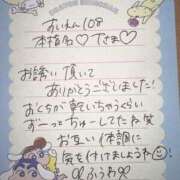 あいれん108
本指名♡Tさま♡
お誘い頂いて
ありがとうございました!
おくちが乾いちゃうくらい
ずーっとちゅーしてたね笑
お互い体調に
気を付けましょうね☺!